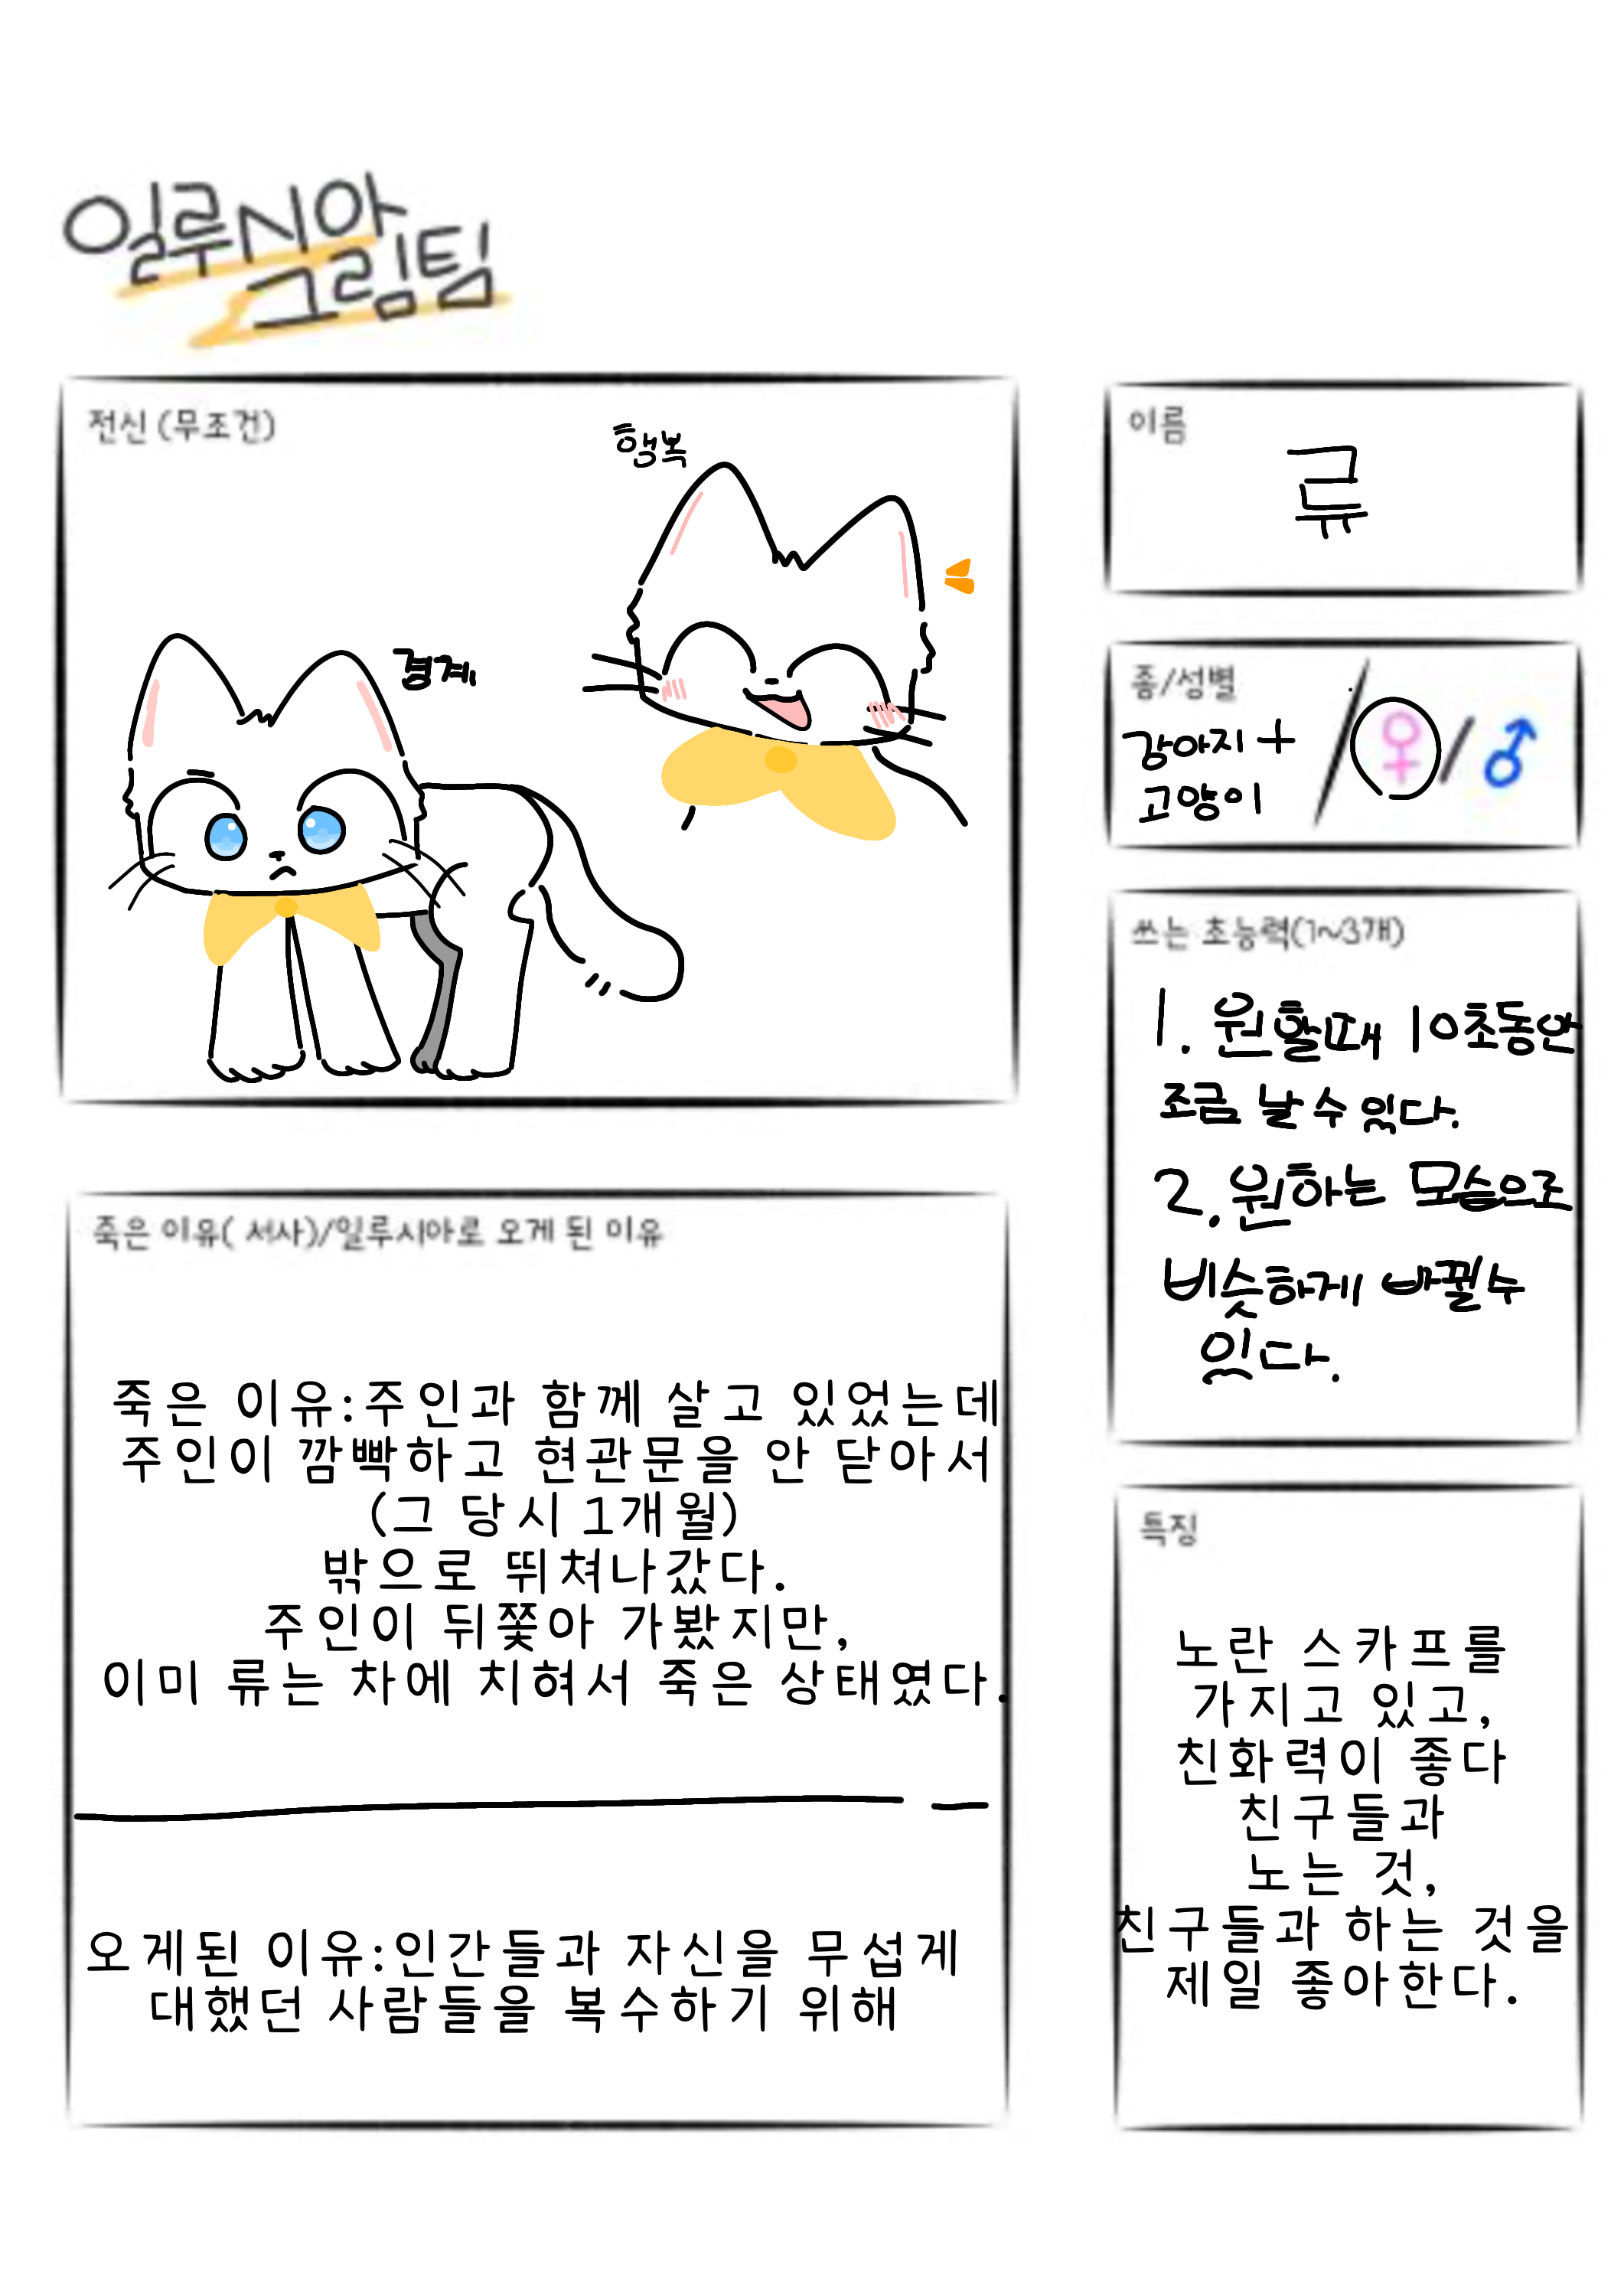 일루시아
그림팀
전신 (무조건)
행복
경계
이름
류
종/성별
강아지 +
고양이
/♀/♂
쓰는 초능력(1~3개)
1. 원할때 10초동안
조금 날 수 있다.
2. 원하는 모습으로
비슷하게 바뀔수
있다.
죽은 이유( 서사)/일루시아로 오게 된 이유
죽은 이유:주인과 함께 살고 있었는데
주인이 깜빡하고 현관문을 안 닫아서
(그 당시 1개월)
밖으로 뛰쳐나갔다.
주인이 뒤쫓아 가봤지만,
이미 류는 차에 치혀서 죽은 상태였다.
오게된 이유:인간들과 자신을 무섭게
대했던 사람들을 복수하기 위해
특징
노란 스카프를
가지고 있고,
친화력이 좋다
친구들과
노는 것,
친구들과 하는 것을
제일 좋아한다.